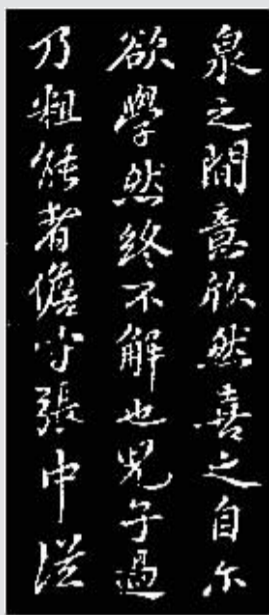 泉之間意欣然喜之自尔
欲學然終不解也兒子過
乃粗能者儋守張中從